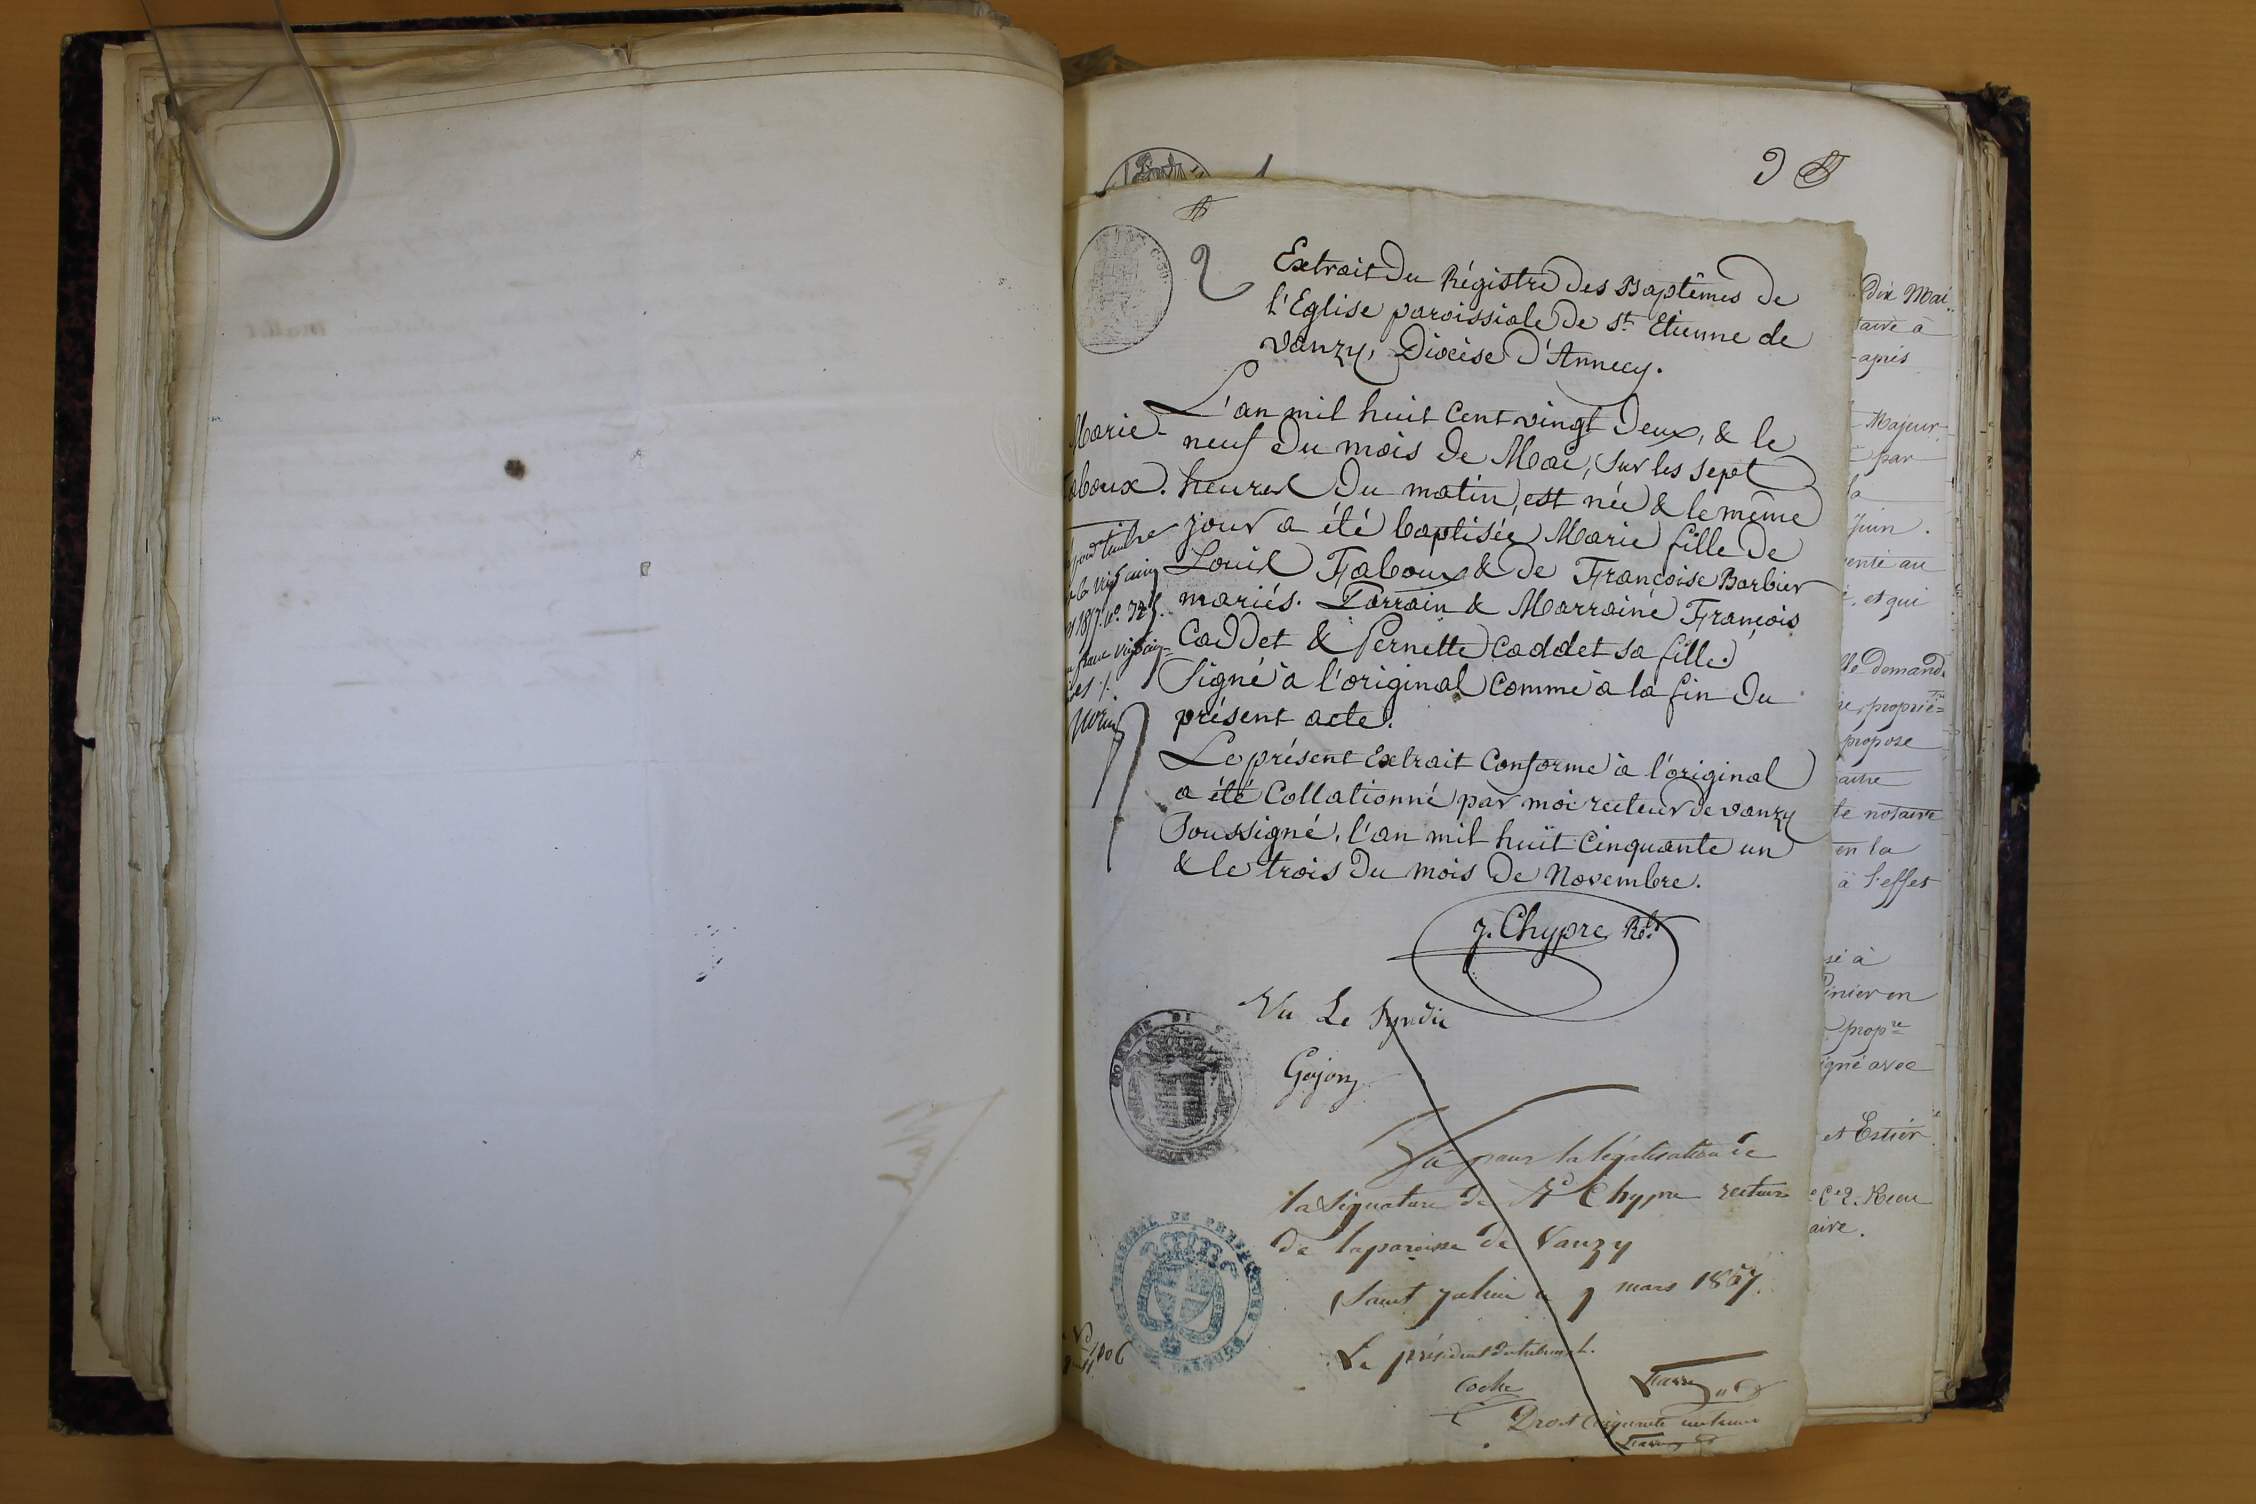 2
Extrait du Régistre des Baptêmes de
l'Eglise paroissiale de St Etienne de
Vanzy, Diocèse d'Annecy.
L'an mil huit cent vingt deux, & le
neuf du mois de Mai, sur les sept
heures du matin, est née & le même
jour a été baptisée Marie fille de
Louis Faboux & de Françoise Barbier
mariés. Parrain & Marraine François
Caddet & Pernette Caddet sa fille.
Signé à l'original comme à la fin du
présent acte.
Le présent Extrait conforme à l'original
a été collationné par moi recteur de vanzy
soussigné, l'an mil huit cinquante un
& le trois du mois de Novembre.
J. Chypre Rr
Marie
Faboux.
Vu Le Syndic
Gojon
Vu pour la légalisation de
la signature de Rd Chypre recteur
de la paroisse de Vanzy
Saint Julien le 9 mars 1857.
Le président du tribunal.
Droit cinquante centimes
dix Mai
taire à
après
Majeur
par
la
Juin.
vente au
et qui
demand
propose
te notaire
en la
à l'effet
sé à
propre
signé avec
et Estier
aire.